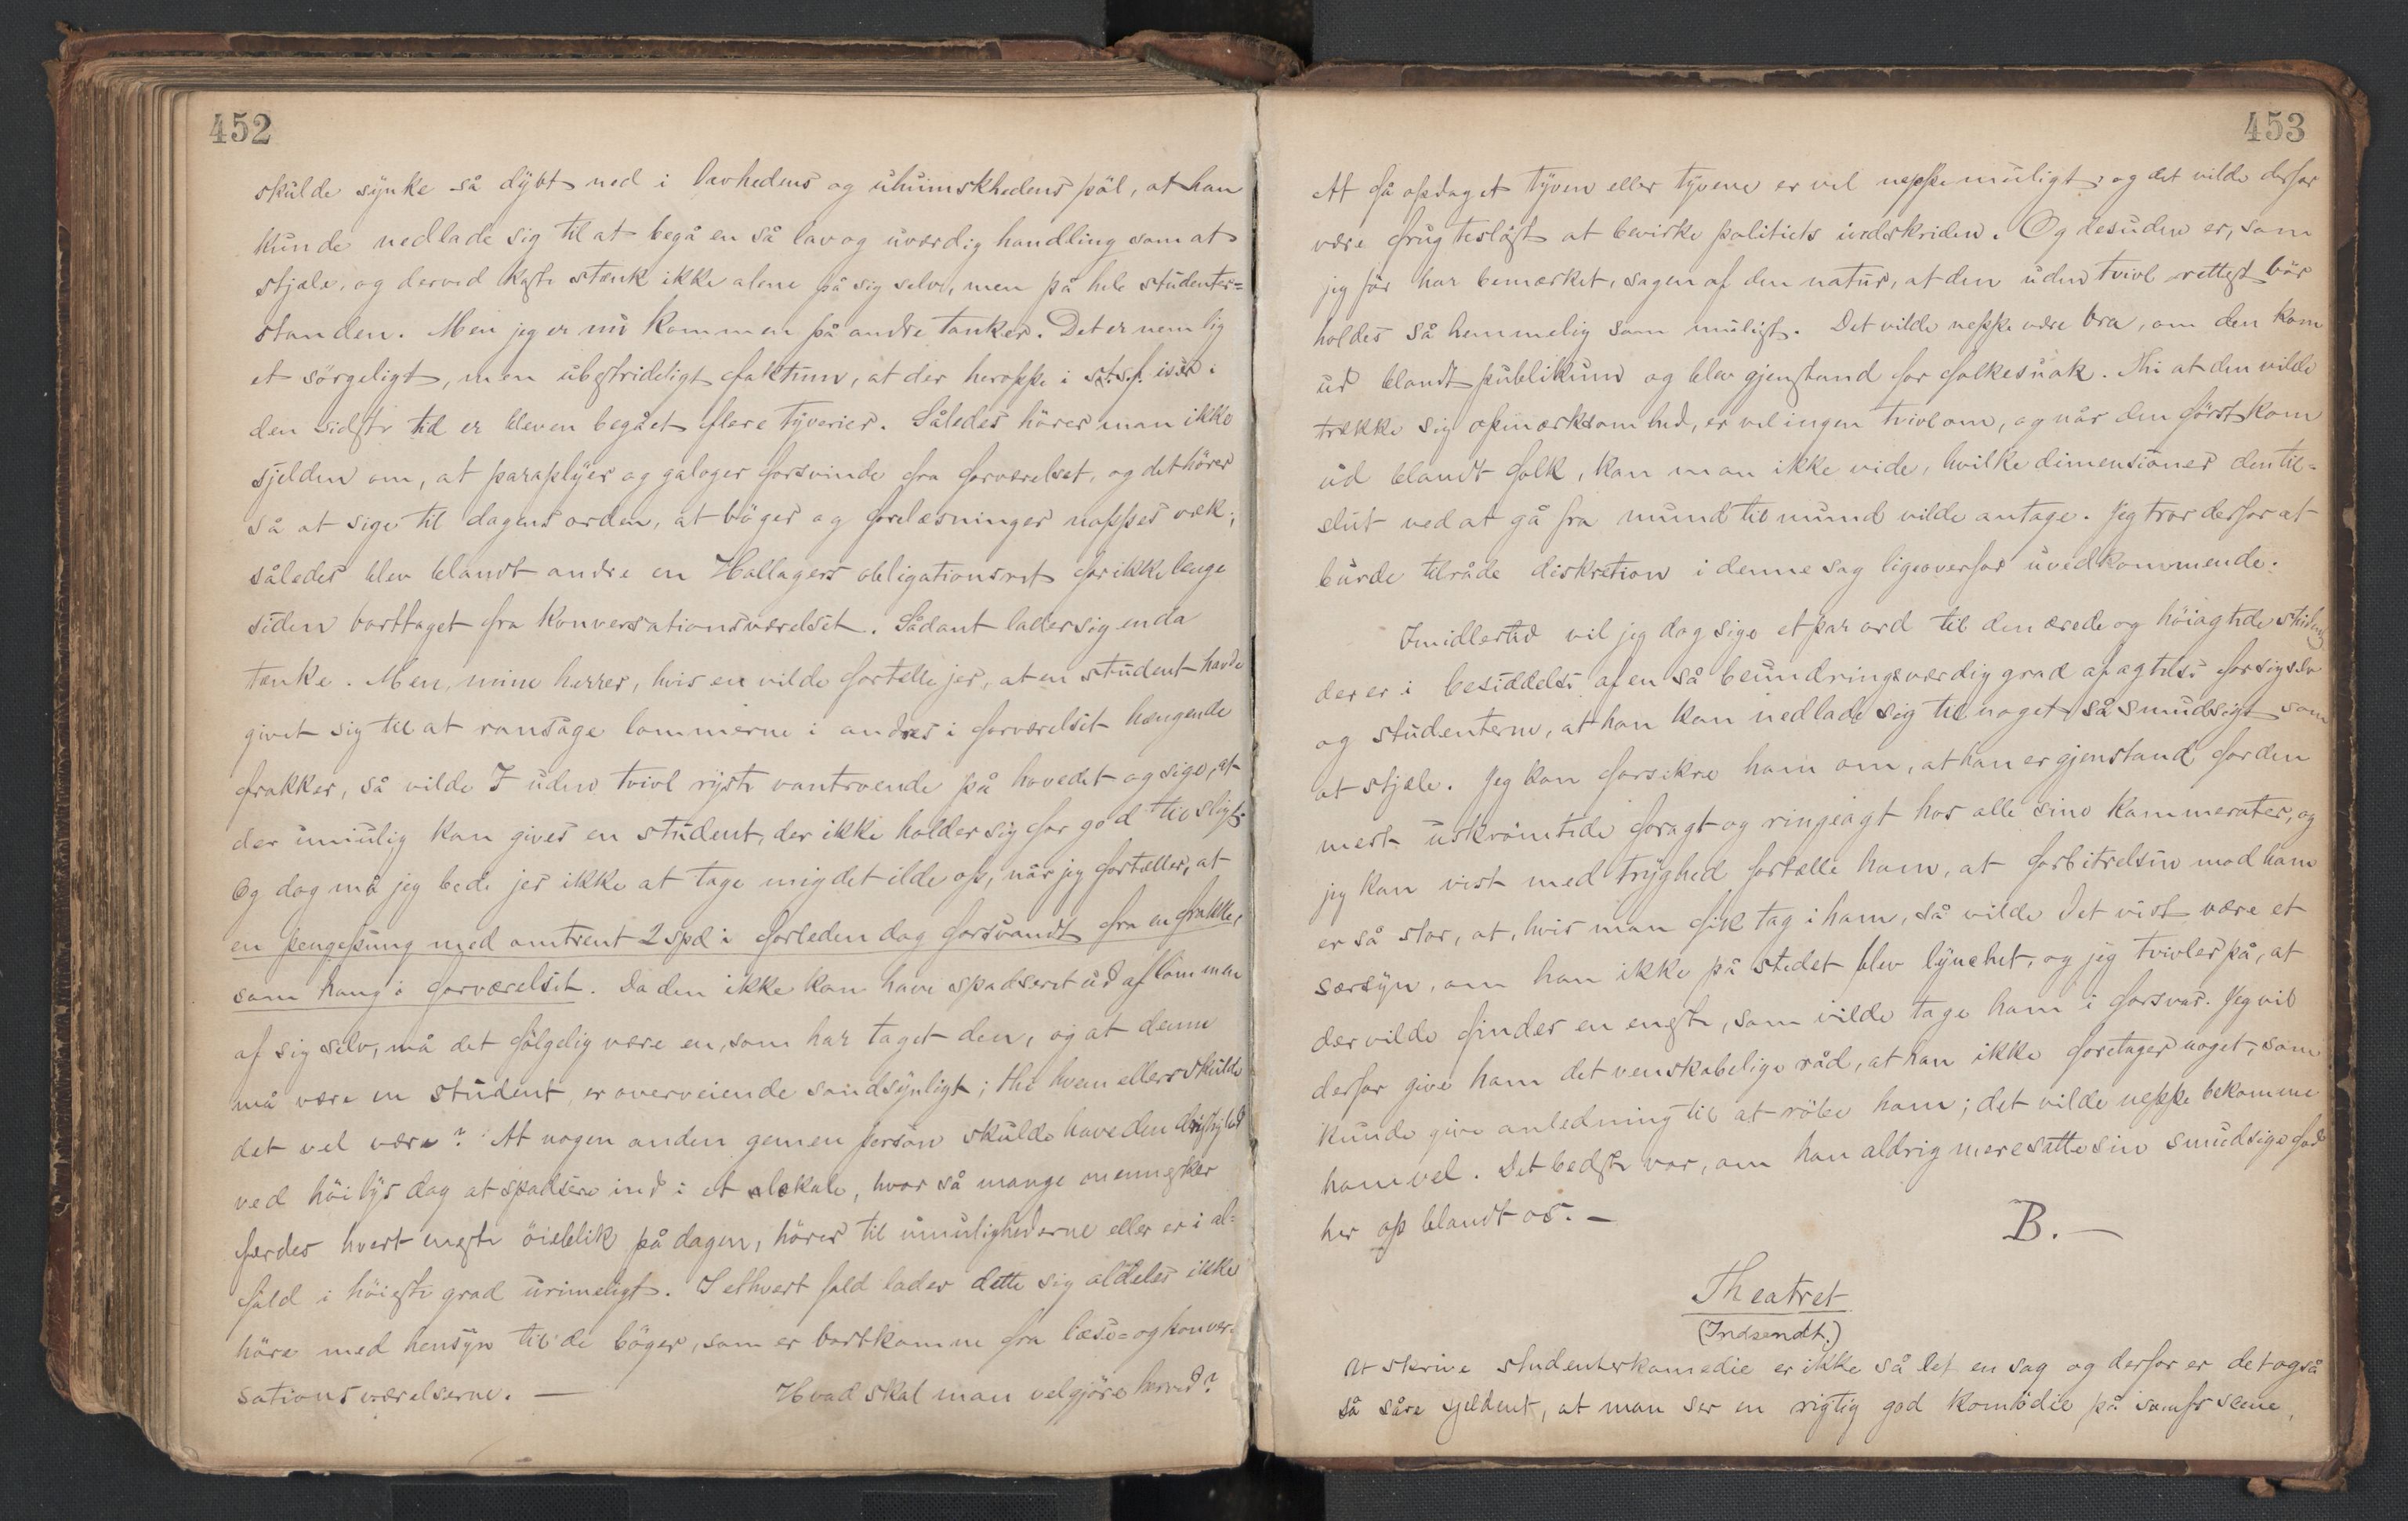 452
skulde synke så dybt ned i lavhedens og uhumskhedens pöl, at han
kunde nedlade sig til at begå en så lav og uværdig handling som at
stjæle, og derved kaste stænk ikke alene på sig selv, men på hele studenter=
standen. Men jeg er nu kommen på andre tanker. Det er nemlig
et sörgeligt, men ubestrideligt faktum, at der heroppe i st. sf. især i
den sidste tid er bleven begået flere tyverier. Således hörer man ikke
sjelden om, at paraplyer og galoger forsvinde fra forværelset, og det hörer
så at sige til dagens orden, at böger og forelæsninger nappes væk;
således blev blandt andre en Hallagers obligationsret for ikke længe
siden borttaget fra Konversationsværelset. Sådant lader sig enda
tænke. Men, mine herrer, hvis en vilde fortælle jer, at en student havde
givet sig til at ransage lommerne i andres i forværelset hængende
frakker, så vilde I uden tvivl ryste vantroende på hovedet og sige, at
der umulig kan gives en student, der ikke holder sig for god til sligt.
Og dog må jeg bede jer ikke at tage mig det ilde op, når jeg fortæller, at
en pengepung med omtrent 2 spd i forleden dag forsvandt fra en frakke,
som hang i forværelset. Da den ikke kan have spadseret ud af lommen
af sig selv, må det fölgelig være en, som har taget den, og at denne
må være en student, er overveiende sandsynligt; thi hvem ellers skulde
det vel være? At nogen anden gemen person skulde have den dristighed
ved höilys dag at spadsere ind i et lokale, hvor så mange mennesker
færdes hvert eneste öieblik på dagen, hörer til umulighederne eller er i al=
fald i höieste grad urimeligt. I ethvert fald lader dette sig aldeles ikke
höre med hensyn til de böger, som er bortkomne fra læse= og konver=
sationsværelserne. — Hvad skal man vel gjöre herved?
453
At få opdaget tyven eller tyvene er vel neppe muligt, og det vilde derfor
være frugteslöst at bevirke politiets indskriden. Og desuden er, som
jeg för har bemærket, sagen af den natur, at den uden tvivl rettest bör
holdes så hemmelig som muligt. Det vilde neppe være bra, om den kom
ud blandt publikum og blev gjenstand for folkesnak. Thi at den vilde
trække sig opmærksomhed, er vel ingen tvivl om, og når den förste kom
ud blandt folk, kan man ikke vide, hvilke dimensioner den til=
slut ved at gå fra mund til mund vilde antage. Jeg tror derfor at
burde tilråde diskretion i denne sag ligeoverfor uvedkommende.
Imidlertid vil jeg dog sige et par ord til den ærede og höiagtede student,
der er i besiddelse af en så beundringsværdig grad af agtelse for sig selv
og studenterne, at han kan nedlade sig til noget så smudsigt som
at stjæle. Jeg kan forsikre ham om, at han er gjenstand for den
mest uskrömtede foragt og ringeagt hos alle sine kammerater, og
jeg kan vist med tryghed fortælle ham, at forbitrelsen mod ham
er så stor, at, hvis man fik tag i ham, så vilde det vist være et
særsyn, om han ikke på stedet blev lynchet, og jeg tvivler på, at
der vilde findes en eneste, som vilde tage ham i forsvar. Jeg vil
derfor give ham det venskabelige råd, at han ikke foretager noget, som
kunde give anledning til at röbe ham; det vilde neppe bekomme
ham vel. Det bedste var, om han aldrig mere satte sin smudsige fod
her op blandt os. —
B. —
Theatret
(Indsendt.)
At skrive studenterkomedie er ikke så let en sag og derfor er det også
så såre sjeldent, at man ser en rigtig god komödie på samfs scene,